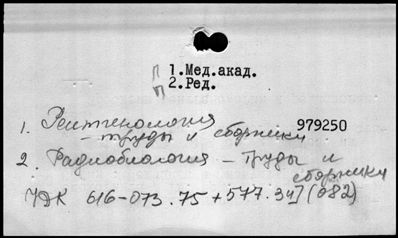 П 1.Мед.акад.
П 2.Ред.
1. Рентгенология
- труды и сборники 979250
2. Радиобиология - Труды и
сборники
УДК 616-073.75+577.34](082)